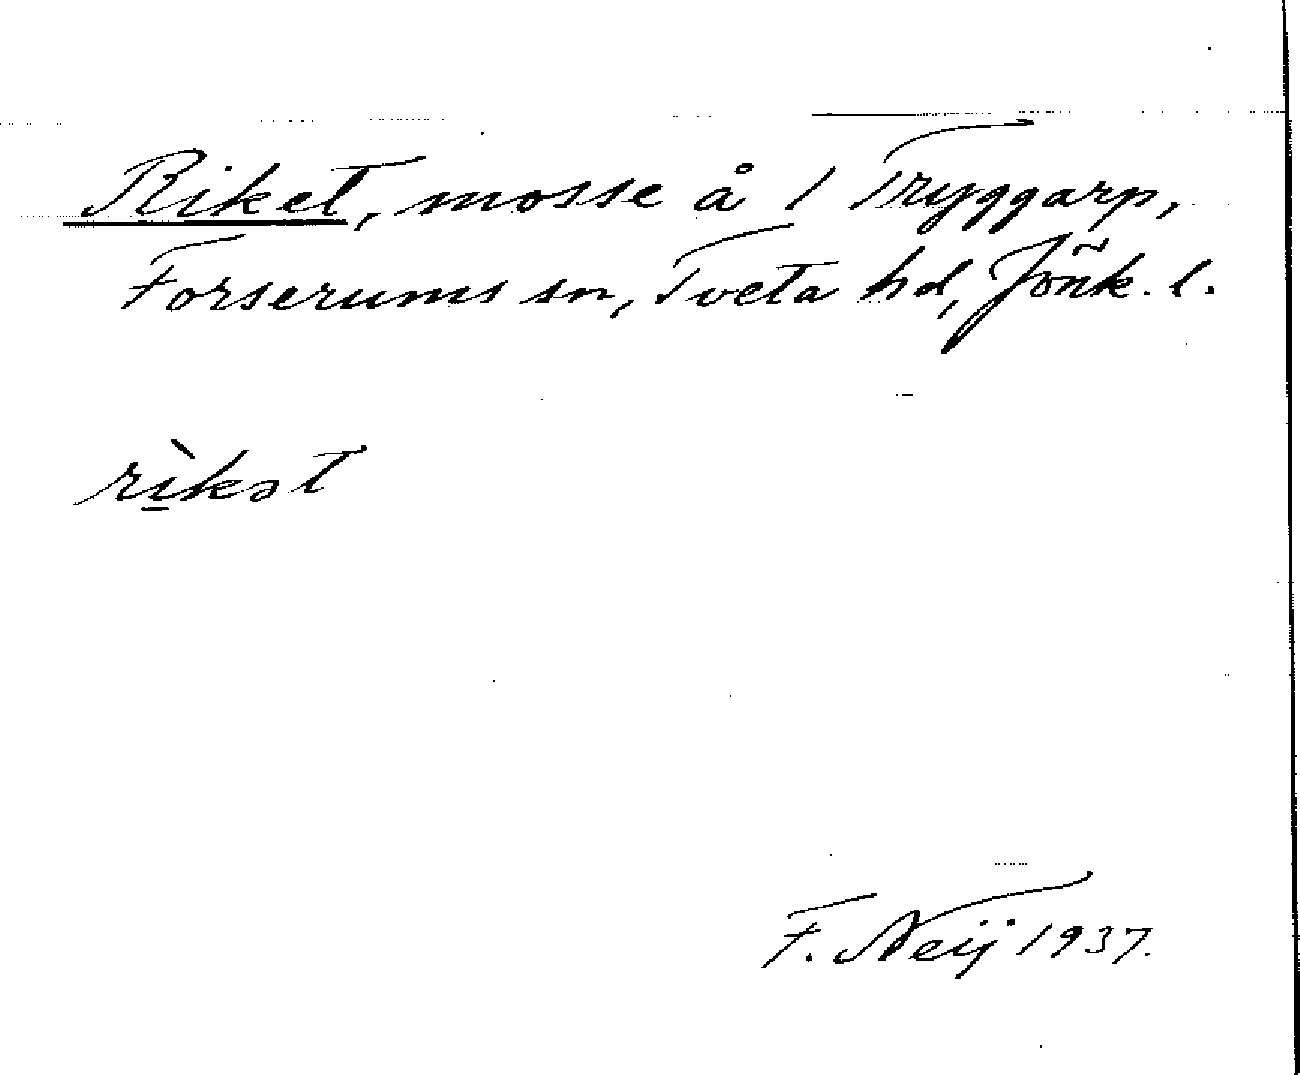 Riket, mosse å 1 Tryggarp,
Forserums sn, Tveta hd, Jönk. l.
rìkət
F. Neij 1937.